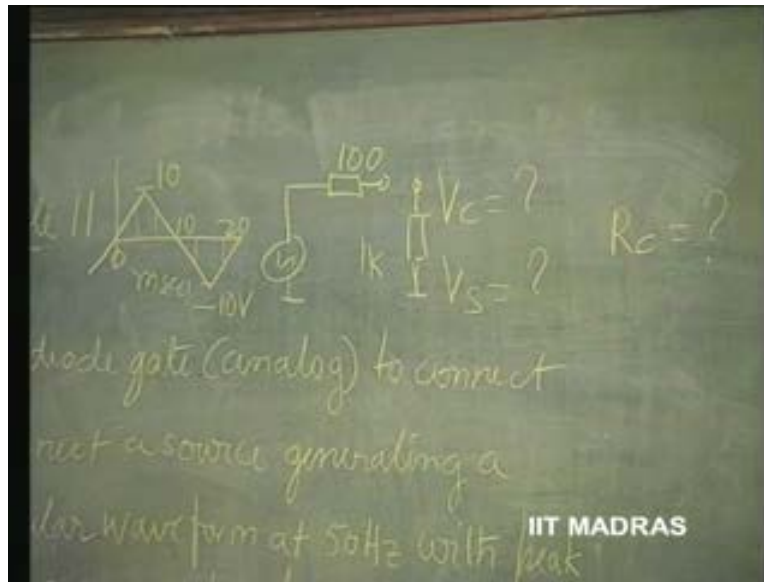 10
100
11
10
20
0
msec
-10V
Vc = ?
1k
Vs = ?
Rc = ?
diode gate (analog) to connect
nect a source generating a
lar waveform at 50Hz with peak
IIT MADRAS